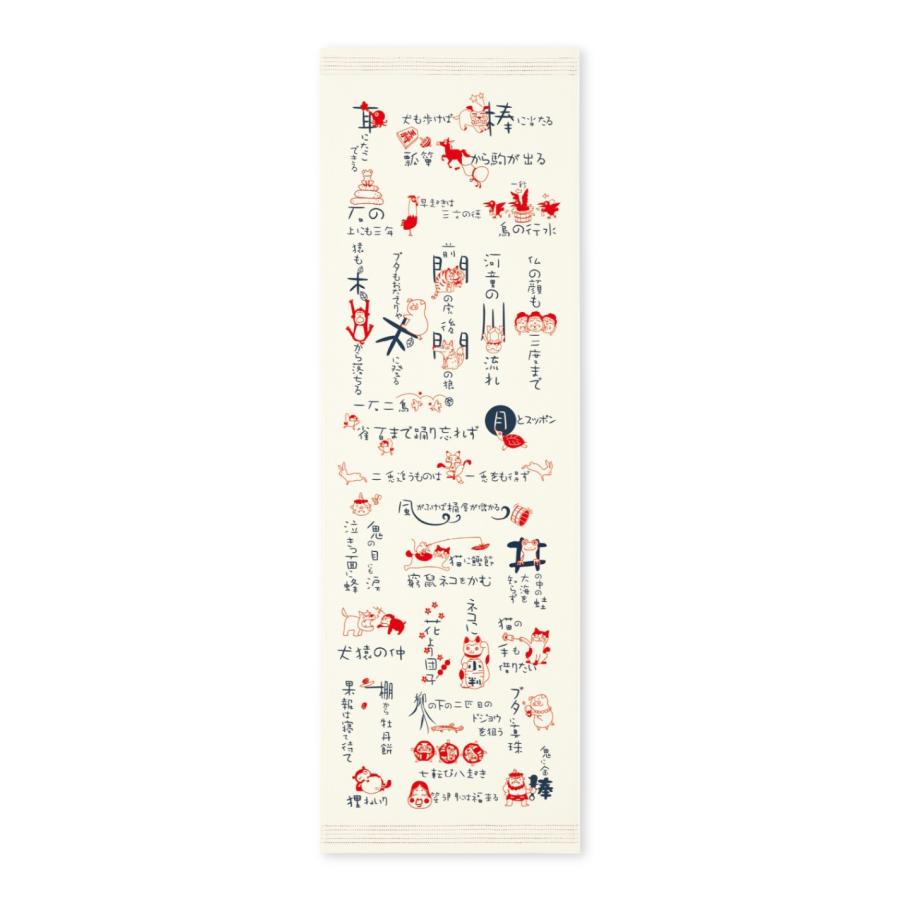 耳にたこできる
犬も歩けば棒に当たる
瓢箪から駒が出る
石の上にも三年
早起きは三文の徳
烏の行水
猿も木から落ちる
ブタもおだてりゃ木に登る
前門の虎後門の狼
河童の川流れ
仏の顔も三度まで
一石二鳥
雀百まで踊り忘れず
月とスッポン
二兎追うものは一兎をも得ず
風がふけば桶屋が儲かる
鬼の目にも涙
泣きっ面に蜂
猫に鰹節
窮鼠ネコをかむ
井の中の蛙大海を知らず
犬猿の仲
花より団子
ネコに小判
猫の手も借りたい
棚から牡丹餅
果報は寝て待て
柳の下の二匹目のドジョウを狙う
ブタに真珠
七転び八起き
鬼に金棒
狸ねいり
笑う門には福来る